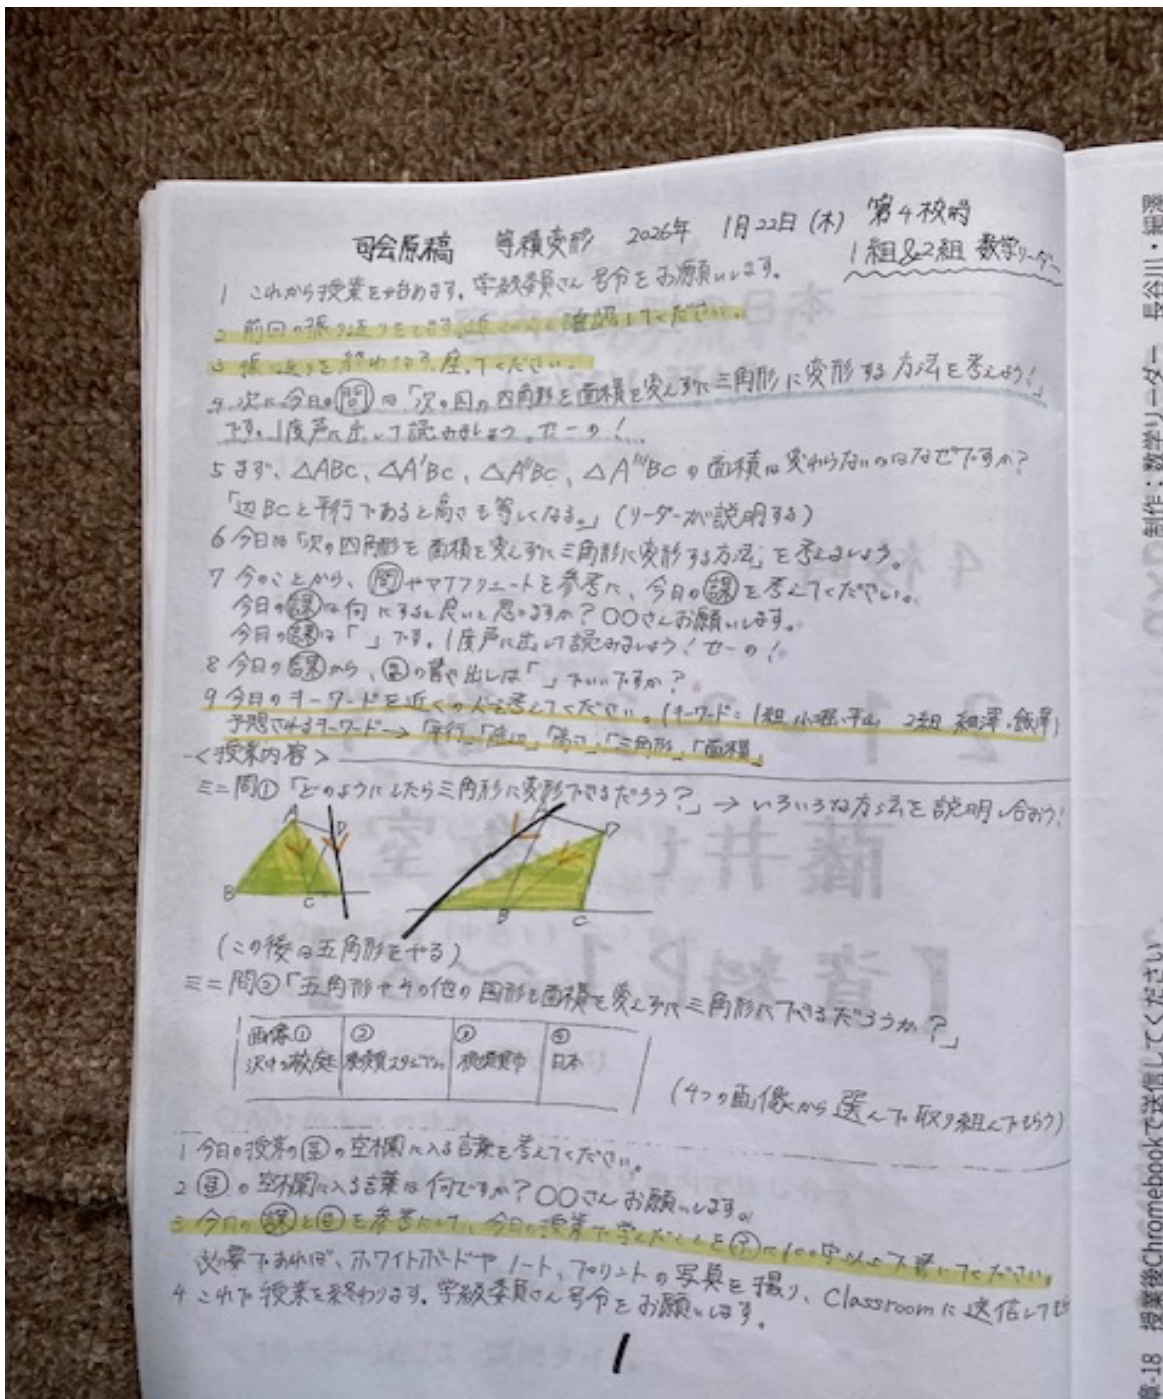 司会原稿 等積変形 2026年 1月22日(木) 第4校時
1組&2組 数学リーダー
1 これから授業を始めます。学級委員さん号令をお願いします。
2 前回の振り返りをします。近くの人と確認してください。
3 振り返りを終わります。座ってください。
4 次に今日の問は「次の図の四角形を面積を変えずに三角形に変形する方法を考えよう!」
です。1度声に出して読みましょう。せーの!...
5 まず、△ABC、△A'BC、△A''BC、△A'''BCの面積は変わらないのはなぜですか?
「辺BCと平行であると高さも等しくなる。」(リーダーが説明する)
6 今日は「次の四角形を面積を変えずに三角形に変形する方法」を考えましょう。
7 今のことから、問やマナブリエートを参考に、今日の課を考えてください。
今日の課は何にすると良いと思いますか?〇〇さんお願いします。
今日の課は「 」です。1度声に出して読みましょう!せーの!
8 今日の課から、の書き出しは「 」でいいですか?
9 今日のキーワードを近くの人と考えてください。(キーワード:1組 小堀・平山 2組 細澤・飯澤)
予想されるキーワード→「平行」「底辺」「高さ」「三角形」「面積」
<授業内容>
ミニ問①「どのようにしたら三角形に変形できるだろう?」→いろいろな方法を説明し合おう!
A D
B C
A D
B C
(この後は五角形をやる)
ミニ問②「五角形やその他の図形も面積を変えずに三角形にできるだろうか?」
画像① ② ③ ④
沢中の校庭 横須賀スタジアム 横須賀市 日本
(4つの画像から選んで取り組んでもらう)
1 今日の授業のの空欄に入る言葉を考えてください。
2 の空欄に入る言葉は何ですか?〇〇さんお願いします。
3 今日の課とを参考にして、今日の授業で学んだことをに100字以上で書いてください。
必要であれば、ホワイトボードやノート、プリントの写真を撮り、Classroomに送信して
4 これで授業を終わります。学級委員さん号令をお願いします。
1
制作:数学リーダー 長谷川・細澤
授業後Chromebookで送信してください